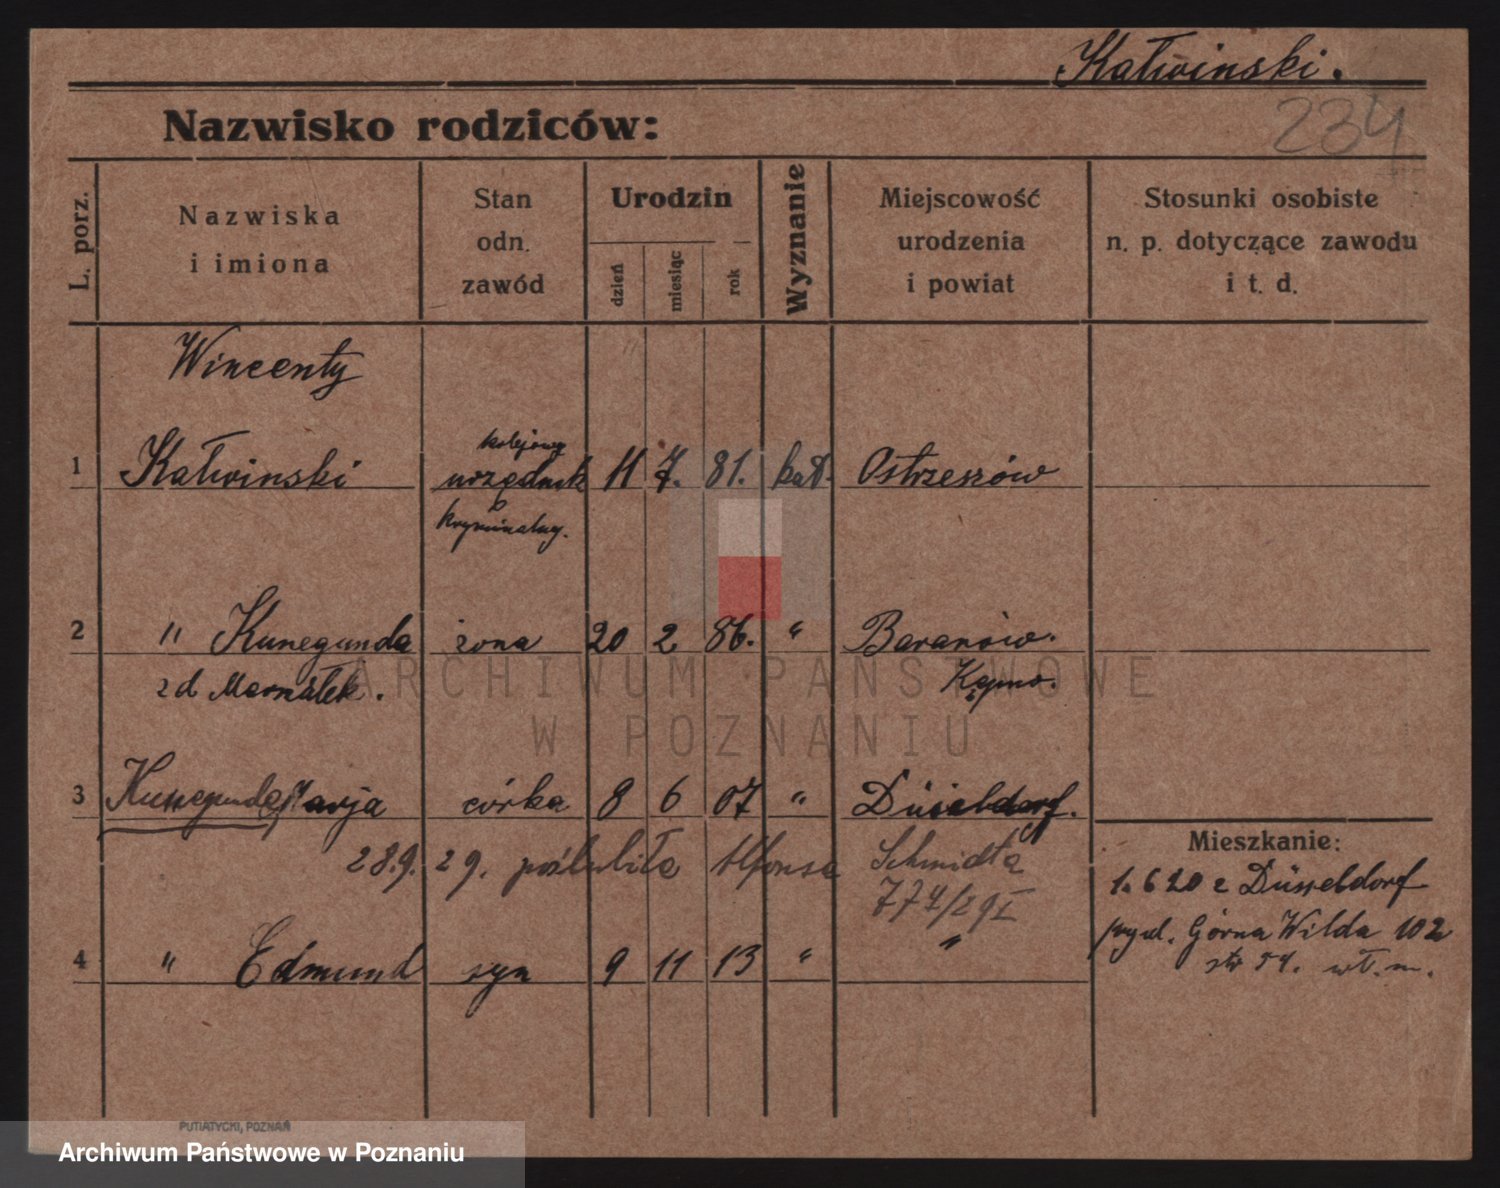 Kałwinski.
234
Nazwisko rodziców:
L. porz.
Nazwiska
i imiona
Stan
odn.
zawód
Urodzin
dzień
miesiąc
rok
Wyznanie
Miejscowość
urodzenia
i powiat
Stosunki osobiste
n. p. dotyczące zawodu
i t. d.
Wincenty
kolejowy
1 Kałwinski urzędnik 11 7. 81. kat. Ostrzeszów
kryminalny.
2 " Kunegunda żona 20 2 86. " Baranów.
z d. Kępno.
3 Kunegunda Marja córka 8 6 07 " Düsseldorf.
28.9. 29. poślubiła Alfonsa Schmidta
774/29 I
4 " Edmund syn 9 11 13 " "
Mieszkanie:
1. 6 20 z Düsseldorf
Górna Wilda 102
PUTIATYCKI, POZNAŃ
ARCHIWUM PAŃSTWOWE
W POZNANIU
Archiwum Państwowe w Poznaniu